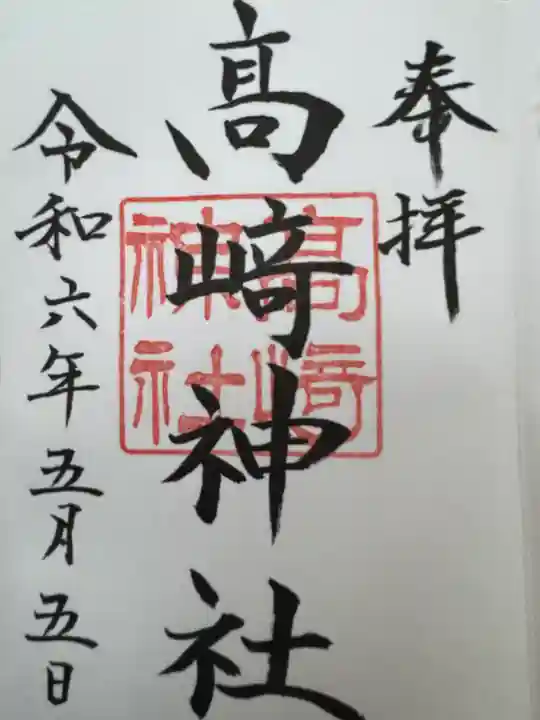 奉拝
髙﨑神社
高﨑神社
令和六年五月五日